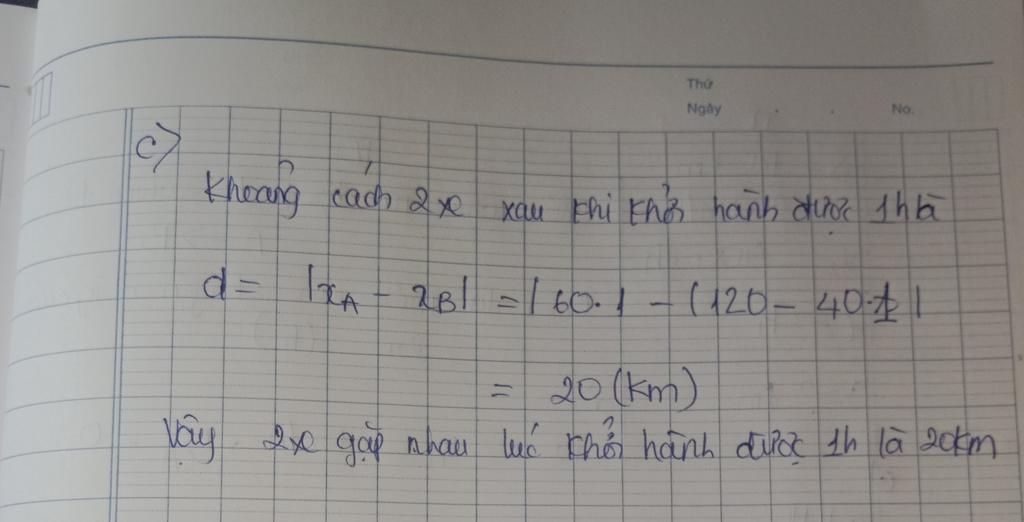 Thứ
Ngày . . No.
c)
Khoảng cách 2xe xau khi khởi hành được 1h là
d = |xA - xB| = |60.1 - (120 - 40.1|
= 20 (km)
Vậy 2xe gặp nhau lúc khởi hành được 1h là 20km